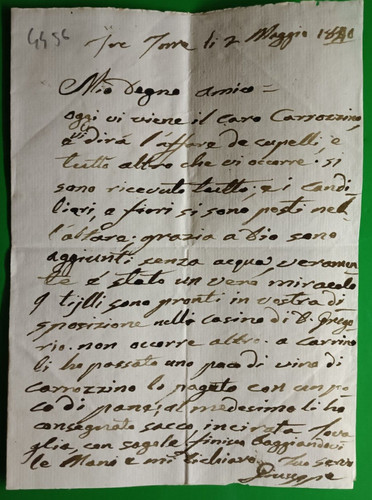 4456
Tre Torre li 2 Maggio
Mio Degno amico =
oggi vi viene il caro Carrozzino,
e vi dirà l'affare de capelli, e
tutto altro che vi occorre. si
sono ricevuto tutto. e i candi
lieri, e fiori si sono posti nell
l'altare. grazia a Dio sono
aggiunti senza acqua, veramen
te è stato un vero miracolo
sono pronti in vostra di
sposizione nello casino di D. Grego
rio. non occorre altro. a Carrino
li ho passato uno poco di vino di
Carrozzino lo pagato con un po
co di pane; al medesimo li ho
consegnato sacco, incirata Tova
glia, con sogale finisco baggiandovi
le Mano e mi dichiaro Tuo servo
Giuseppe